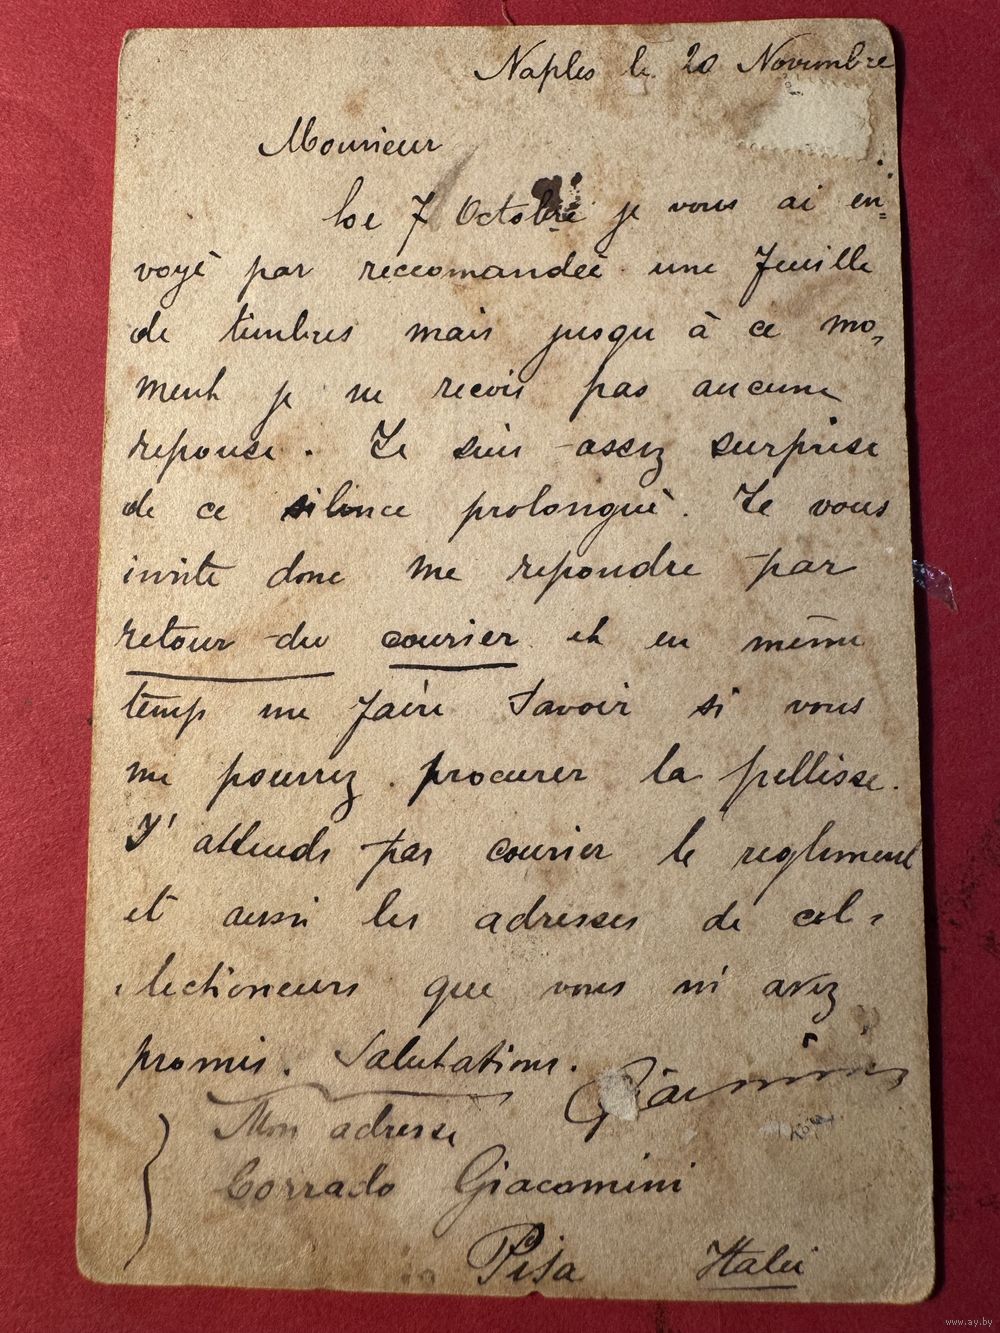 Naples le 20 Novembre
Monsieur
Le 7 Octobre je vous ai en=
voyé par reccomandée une feuille
de timbres mais jusqu à ce mo=
ment je ne recois pas aucune
reponse. Je suis assez surprise
de ce silence prolonguè. Je vous
invite donc me repondre par
retour du courier et en même
temp me faire savoir si vous
me pourrez procurer la pellisse.
J'attends par courier le reglement
et aussi les adresses de col=
lectioneurs que vous m'avez
promis. Salutations.
Giacomini
Mon adresse
Corrado Giacomini
Pisa Italie
www.ay.by